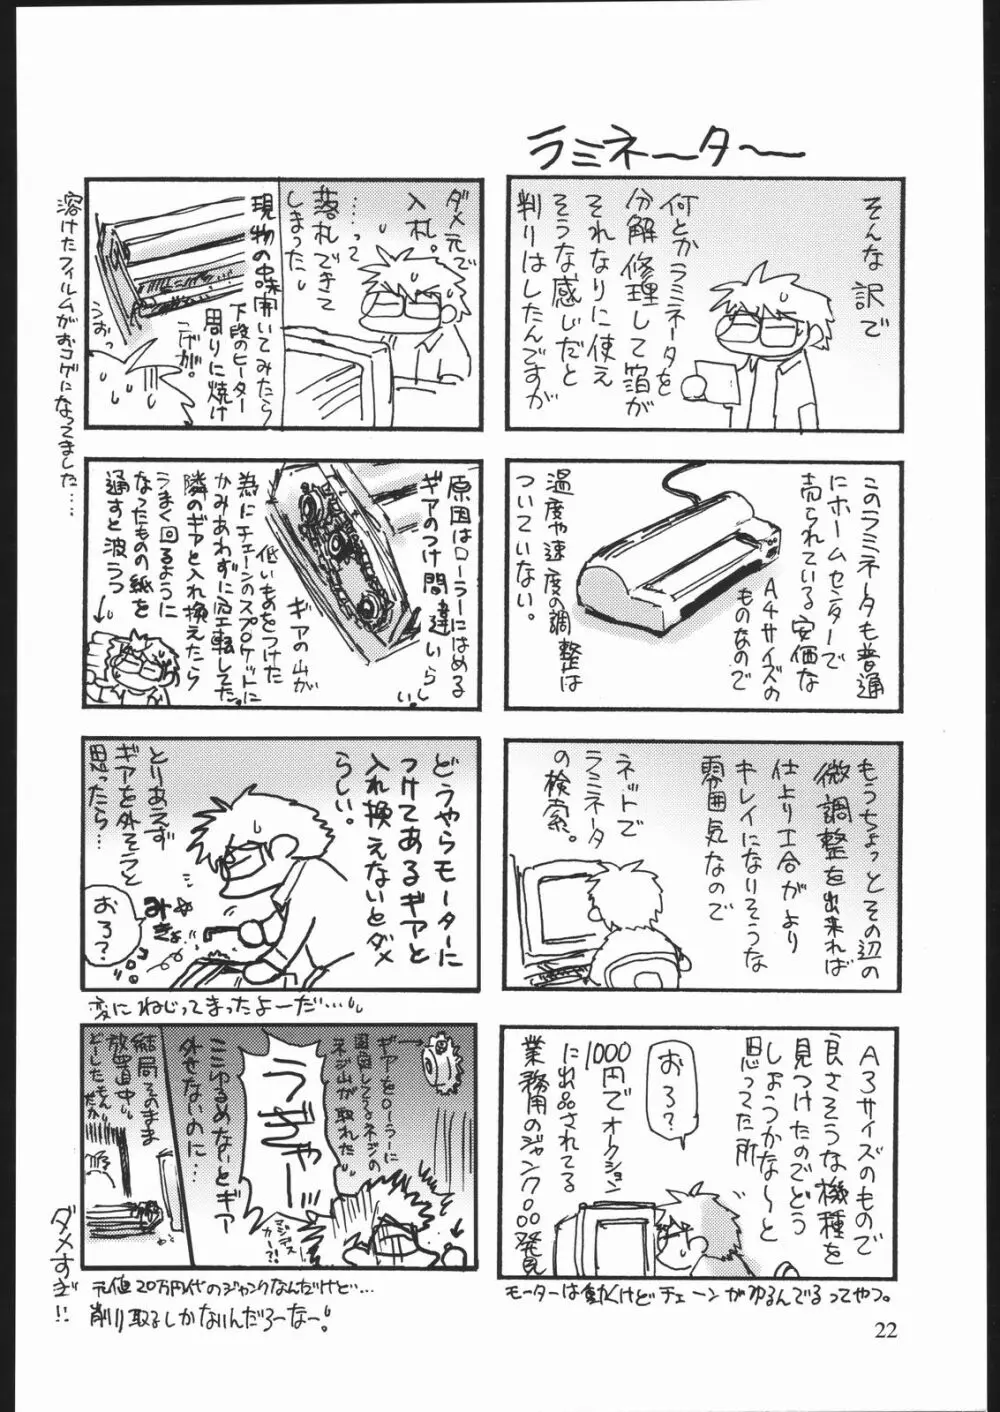 ラミネーター
そんな訳で
何とかラミネータを
分解修理して箔が
それなりに使え
そうな感じだと
判りはしたんですが
このラミネータも普通
にホームセンターで
売られている安価な
A4サイズの
ものなので
温度や速度の調整は
ついていない。
もうちょっとその辺の
微調整を出来れば
仕上り工合がより
キレイになりそうな
雰囲気なので
ネットで
ラミネータ
の検索。
A3サイズのもので
良さそうな機種を
見つけたのでどう
しようかな〜と
思ってた所
おろ?
1000円でオークション
に出品されてる
業務用のジャンク品発見
モーターは動くけどチェーンがゆるんでるってやつ。
ダメ元で
入札。
……って
落札できて
しまったし
現物の中味開いてみたら
下段のヒーター
周りに焼け
こげが。
うおっ
溶けたフィルムがおコゲになってました…。
原因はローラーにはめる
ギアのつけ間違いらしい。
ギアの山が
低いものをつけた
為にチェーンのスプロケットに
かみあわずに空転してた。
隣のギアと入れ換えたら
うまく回るように
なったものの紙を
通すと波うつ
どうやらモーターに
つけてあるギアと
入れ換えないとダメ
らしい。
とりあえず
ギアを外そうと
思ったら…
みきょ
おろ?
変にねじってまったよーだ…。
ギアをローラーに
固定してるネジの
ネジ山が取れた
うぎゃー
マジデスカー?!
ここゆるめないとギア
外せないのに…
結局そのまま
放置中。
どーしたもんだか
元値20万円代のジャンクなんだけど…
削り取るしかないんだろーなー!
ダメすぎ!!
22